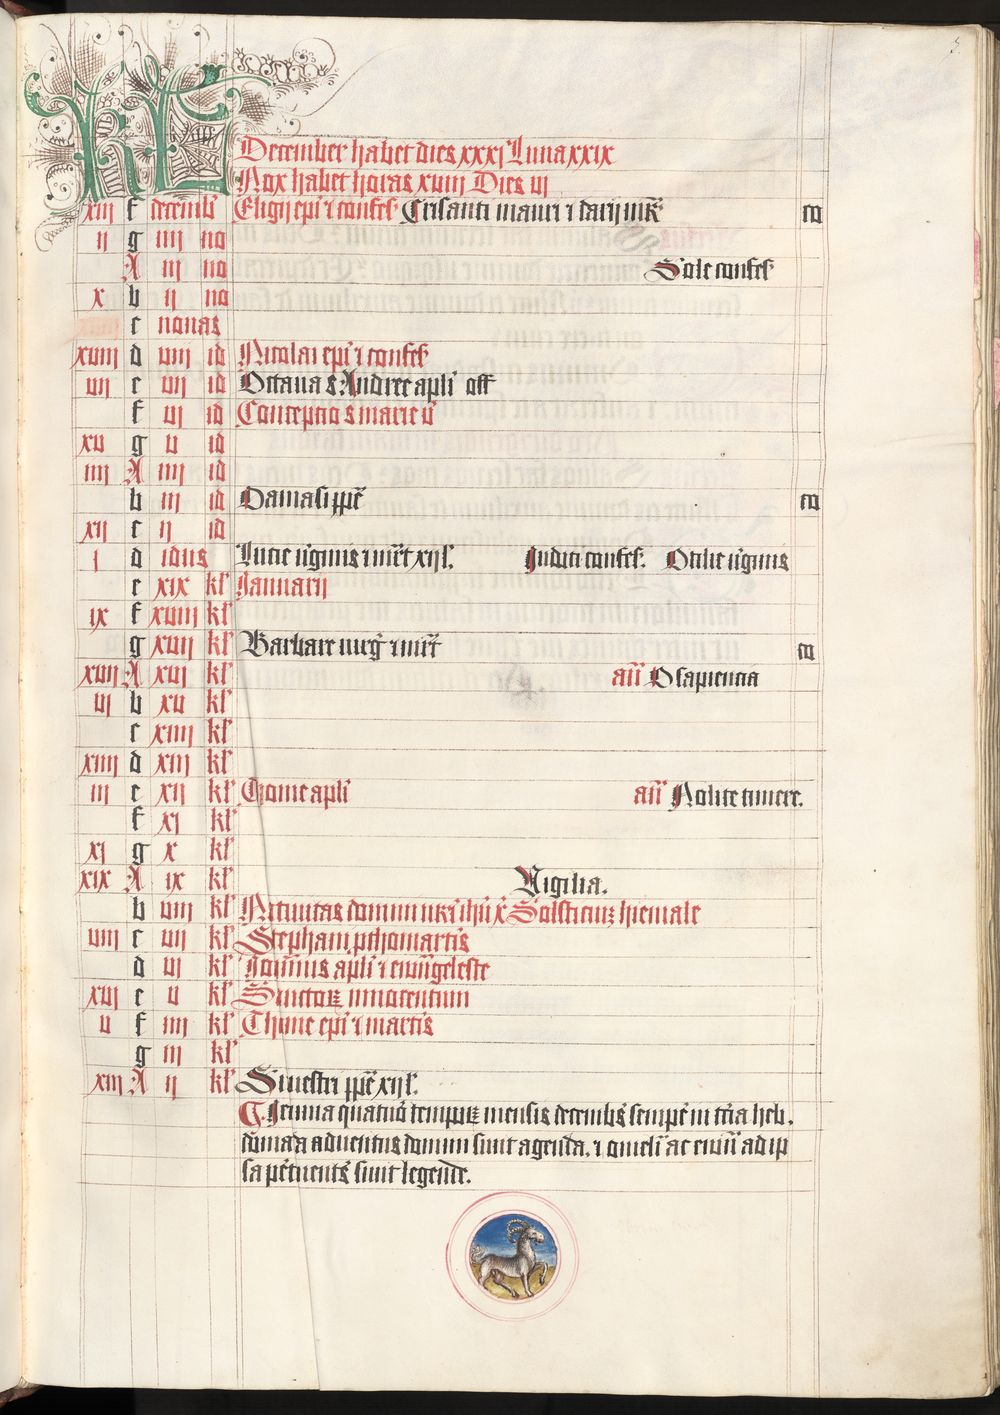 KL
December habet dies xxxi Luna xxix
Nox habet horas xviii Dies vi
xiii f decemb' Eligii ep̄i ⁊ confes' Crisanti mauri ⁊ darii mr̄ co
ii g iiii no
A iii no Sole confes'
x b ii no
c nonas
xviii d viii id Nicolai ep̄i ⁊ confes'
vii e vii id Octaua S. Andree apl̄i off
f vi id Conceptio s marie v̄
xv g v id
iiii A iiii id
b iii id Damasi pp̄e co
xii c ii id
i d idus Lucie v̄ginis ⁊ mr̄t xii l'. Judoci confes'. Otilie v̄ginis
e xix kl' Januarii
ix f xviii kl'
g xvii kl' Barbare virḡ ⁊ mr̄t co
xvii A xvi kl' an̄ O sapiencia
vi b xv kl'
c xiiii kl'
xiiii d xiii kl'
iii e xii kl' Thome apl̄i an̄ Nolite timere.
f xi kl'
xi g x kl'
xix A ix kl' Vigilia.
b viii kl' Natiuitas domini nr̄i ih̄u x̄ Solsticiuꝫ hiemale
viii c vii kl' Stephani pthomartis
d vi kl' Joh̄nis apl̄i ⁊ ewāgeliste
xvi e v kl' Sanctoꝝ innocentum
v f iiii kl' Thome ep̄i ⁊ martis
g iii kl'
xiii A ii kl' Siluestri pp̄e xii l'.
Jeiunia quatuor tempoꝝ mensis decembs' semp̄ in tc̄ia heb
domada aduentus domini sunt agenda. ⁊ omeli' ac ewā ad ip
sa p̄tinentes sunt legende.